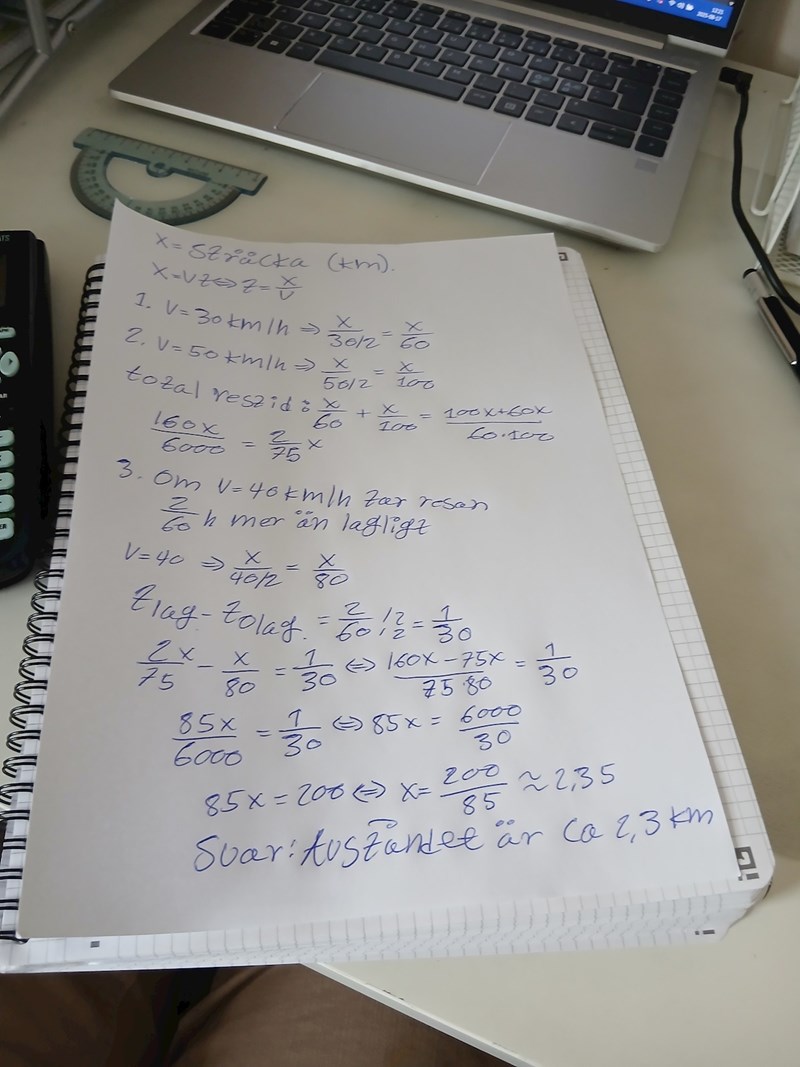 12:21
2025-09-17
x = Sträcka (km).
x = vt ⇔ t = x/v
1. v = 30 km/h ⇒ x/(30/2) = x/60
2. v = 50 km/h ⇒ x/(50/2) = x/100
total restid: x/60 + x/100 = (100x+60x)/(60·100)
160x/6000 = 2/75 x
3. Om v = 40 km/h tar resan
2/60 h mer än lagligt
v = 40 ⇒ x/(40/2) = x/80
tlag - tolag. = 2/60 /2 /2 = 1/30
2x/75 - x/80 = 1/30 ⇔ (160x - 75x)/(75·80) = 1/30
85x/6000 = 1/30 ⇔ 85x = 6000/30
85x = 200 ⇔ x = 200/85 ≈ 2,35
Svar: Avståndet är ca 2,3 km